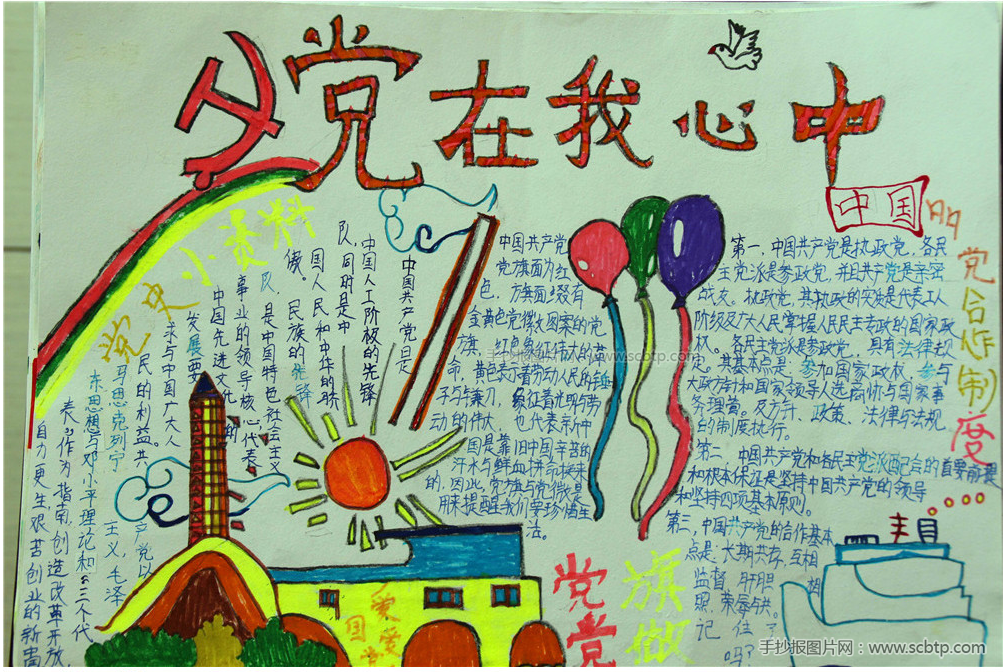 党在我心中
小资料
党史
中国共产党是
中国工人阶级的先锋
队,同时是中
国人民和中华
民族的先锋
队,是中国特色社会主义
事业的领导核心,代表
中国先进文化
发展要
求与中国广大人
民的利益。共
产党以
马思克列宁
主义,毛泽
东思想与邓小平理论和三个代
表,作为指南,创造改革开放,
自力更生艰苦创业的新
中国共产党
党旗面为红
色,方旗面缀有
金黄色党徽图案的党
旗,红色象征伟大的革
命,黄色表示着劳动人民的锤
子与镰刀,象征着光明与劳
动的伟大,也代表示新中
国是靠旧中国辛苦的
汗水与鲜血拼命换来
的,因此,党旗与党徽是
用来提醒我们要珍惜生
活。
中国
党合作制度
第一,中国共产党是执政党,各民
主党派是参政党,并且共产党是亲密
战友。执政党,其执政的实质是代表工人
阶级及广大人民掌握人民民主专政的国家政
权。各民主党派是参政党,具有法律规
定。其基本点是,参加国家政权,参与
大政方针和国家领导人选商你与国家事
务理管。及方升,政策、法律与法规
的制度执行。
第二,中国共产党和各民主党派配合的首要前提
和根本保证是坚持中国共产党的领导
和坚持四项基本原则。
第三,中国共产党的合作基本
点是:长期共存,互相
监督,肝胆相
照,荣辱与共。
记住了
吗?
党旗
党徽
爱党
爱国
手抄报图片网:www.scbtp.com
手抄报图片网:www.scbtp.com